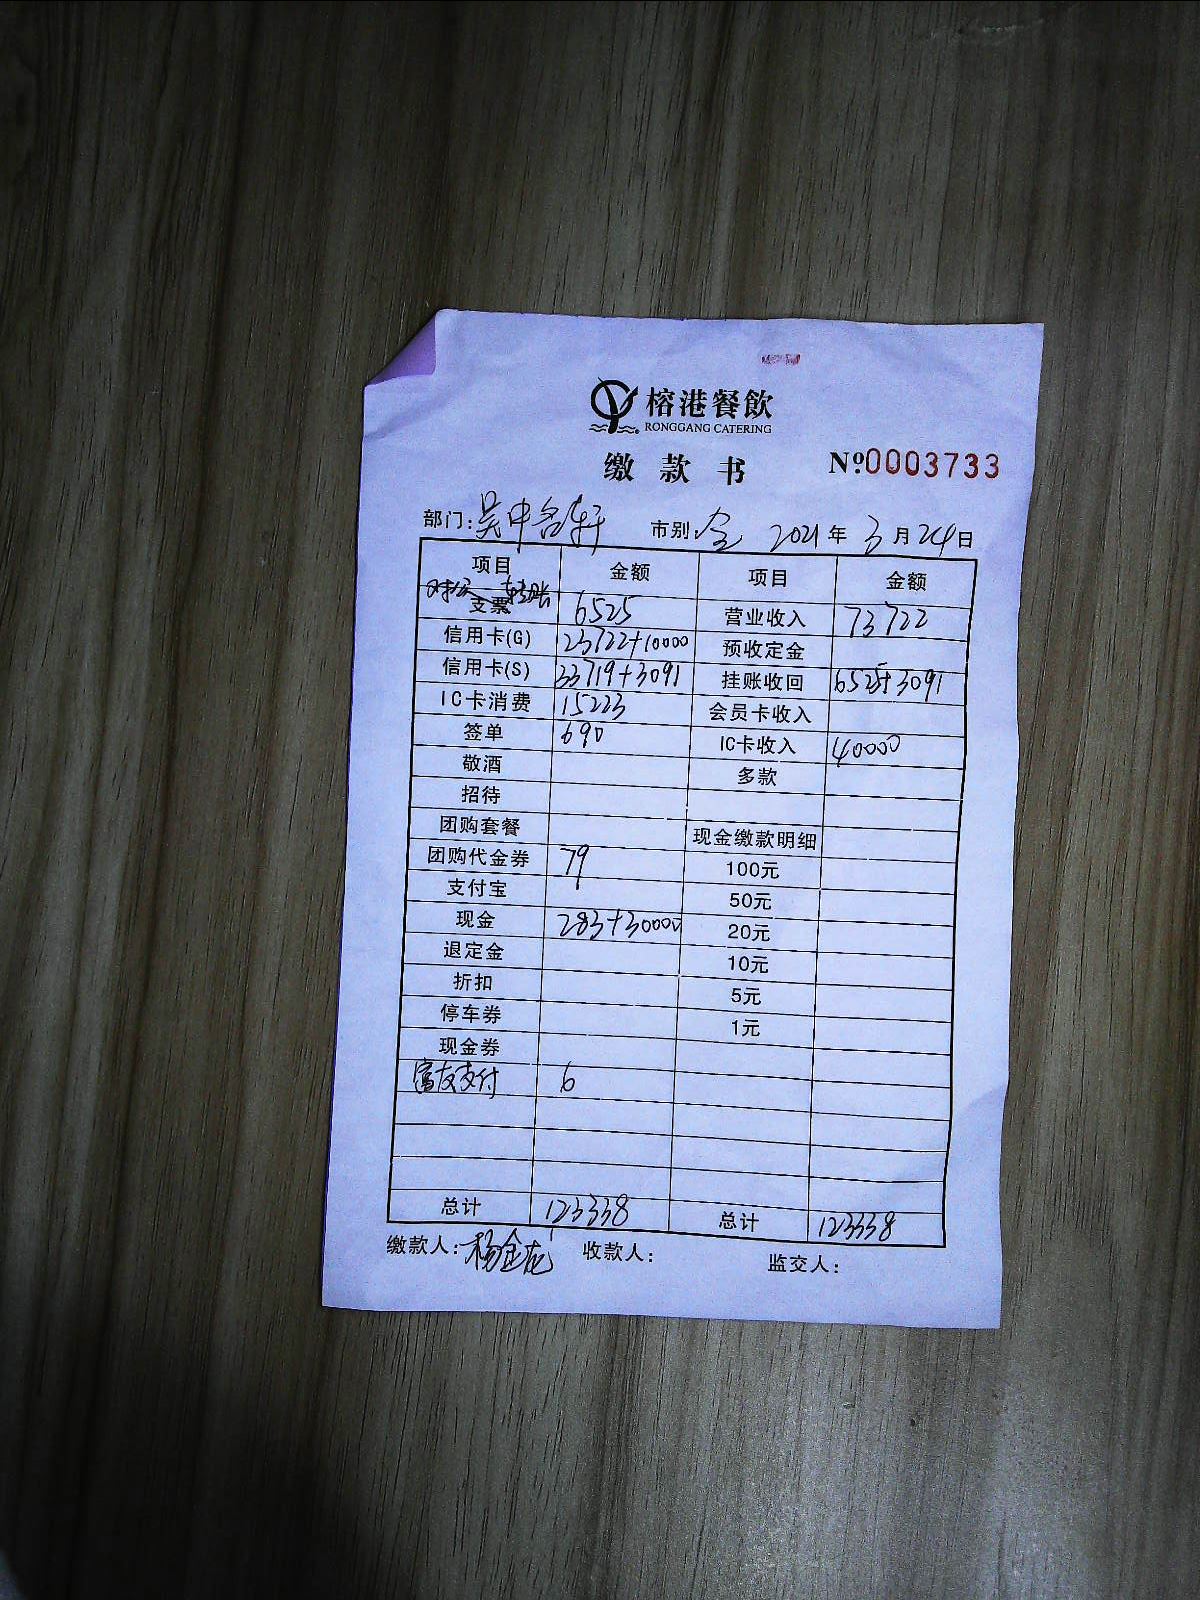 榕港餐飲
RONGGANG CATERING
缴款书 №0003733
部门:吴中名轩 市别:全 2021年3月24日
项目 金额 项目 金额
对公转账
支票 6525 营业收入 73722
信用卡(G) 23722+10000 预收定金
信用卡(S) 33719+3091 挂账收回 6525+3091
IC卡消费 15223 会员卡收入
签单 690 IC卡收入 40000
敬酒 多款
招待
团购套餐 现金缴款明细
团购代金券 79 100元
支付宝 50元
现金 283+30000 20元
退定金 10元
折扣 5元
停车券 1元
现金券
富友支付 6
总计 123338 总计 123338
缴款人:杨金龙 收款人: 监交人: